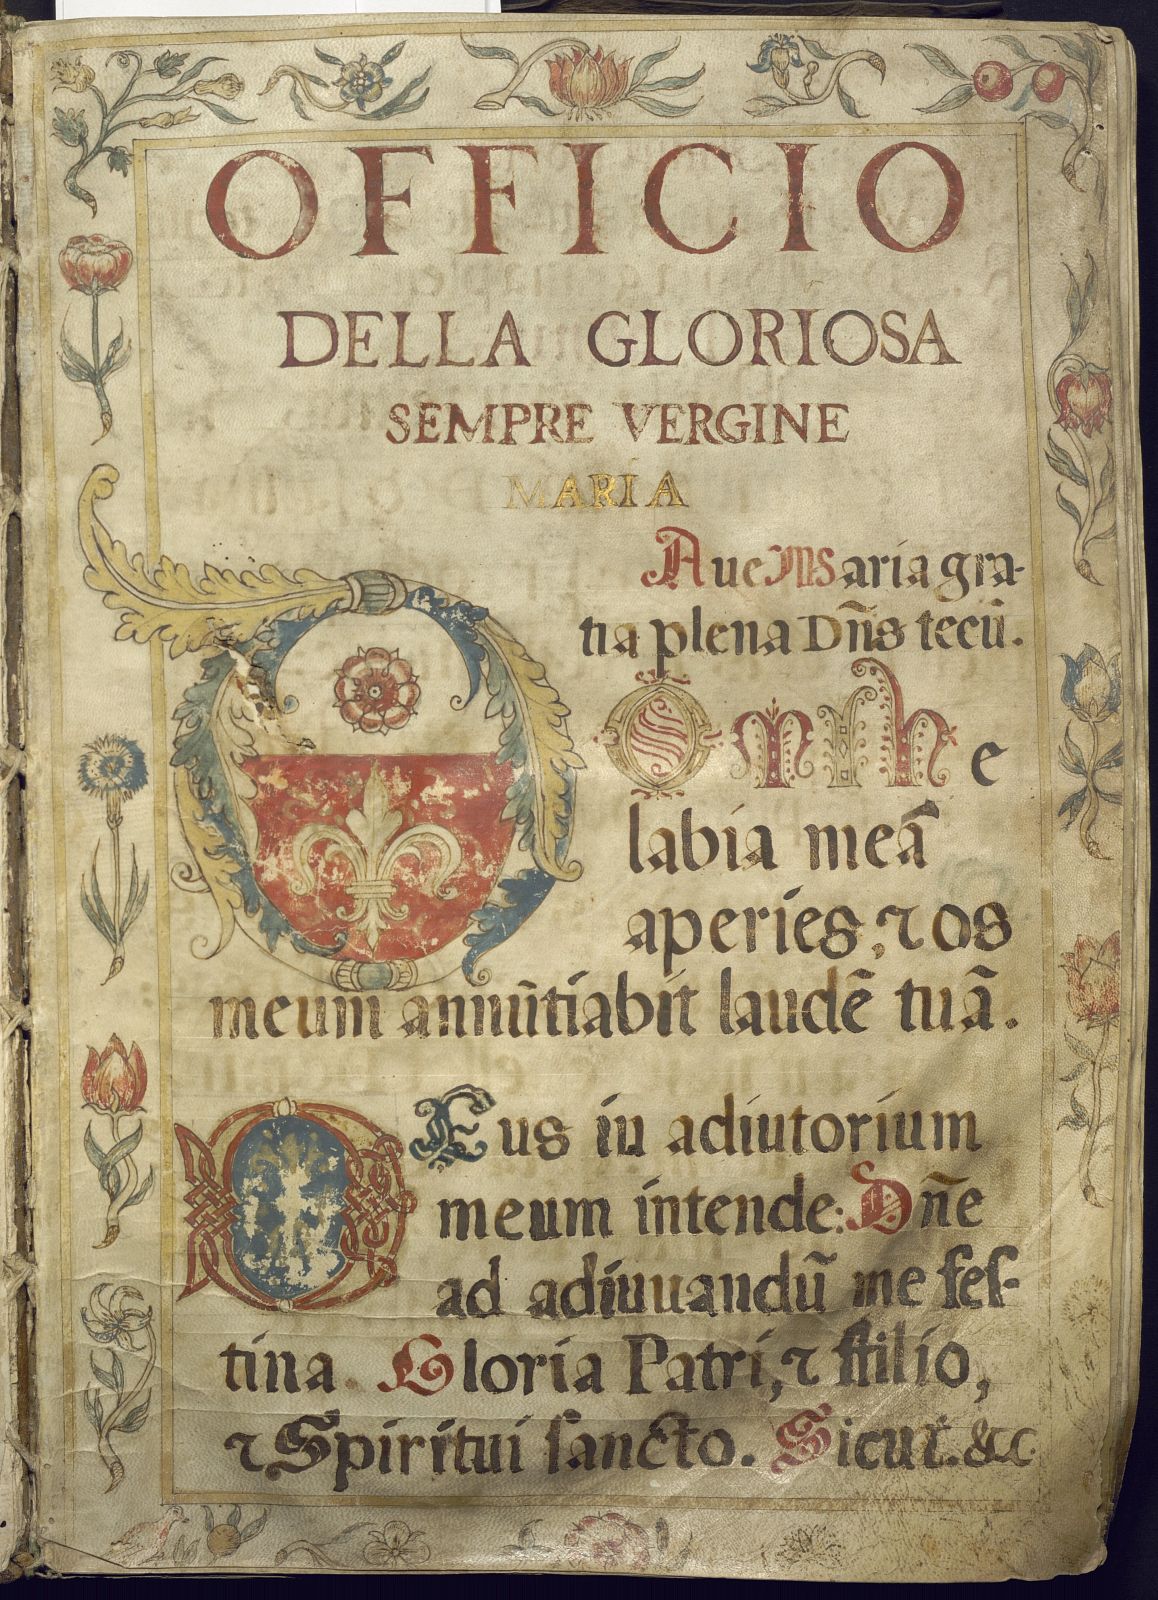 OFFICIO
DELLA GLORIOSA
SEMPRE VERGINE
MARIA
Aue Maria gra-
tia plena Dñs tecũ.
Dñe
labia meã
aperies, ⁊ os
meum annũtiabit laudẽ tuã.
Deus in adiutorium
meum intende: Dñe
ad adiuuandũ me fes-
tina. Gloria Patri, ⁊ filio,
⁊ Spiritui sancto. Sicut. &c